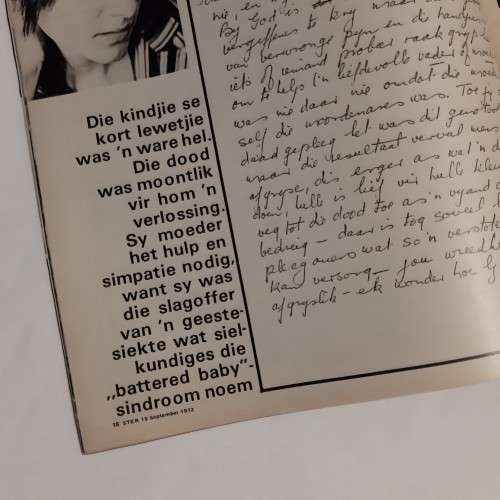 Die kindjie se
kort lewetjie
was 'n ware hel.
Die dood
was moontlik
vir hom 'n
verlossing.
Sy moeder
het hulp en
simpatie nodig,
want sy was
die slagoffer
van 'n geeste-
siekte wat siel-
kundiges die
„battered baby”-
sindroom noem
18 STER 15 September 1972
nie, en
By God is
vergifnis te kry maar
van verwronge pyn en die
iets of iemand probeer raakgryp
om te help ('n liefdevolle vader of moeder
was nie daar nie omdat die
self die moordenares was. Tot
daad gepleeg het was dit
maar die resultaat verval
afgryse, dis erger as wat 'n
doen, hulle is lief vir hulle
veg tot die dood toe as 'n vyand
bedreig – daar is tog soveel
pleegouers wat so 'n verstote
kan versorg – jou wreedheid
afgryslik – ek wonder hoe